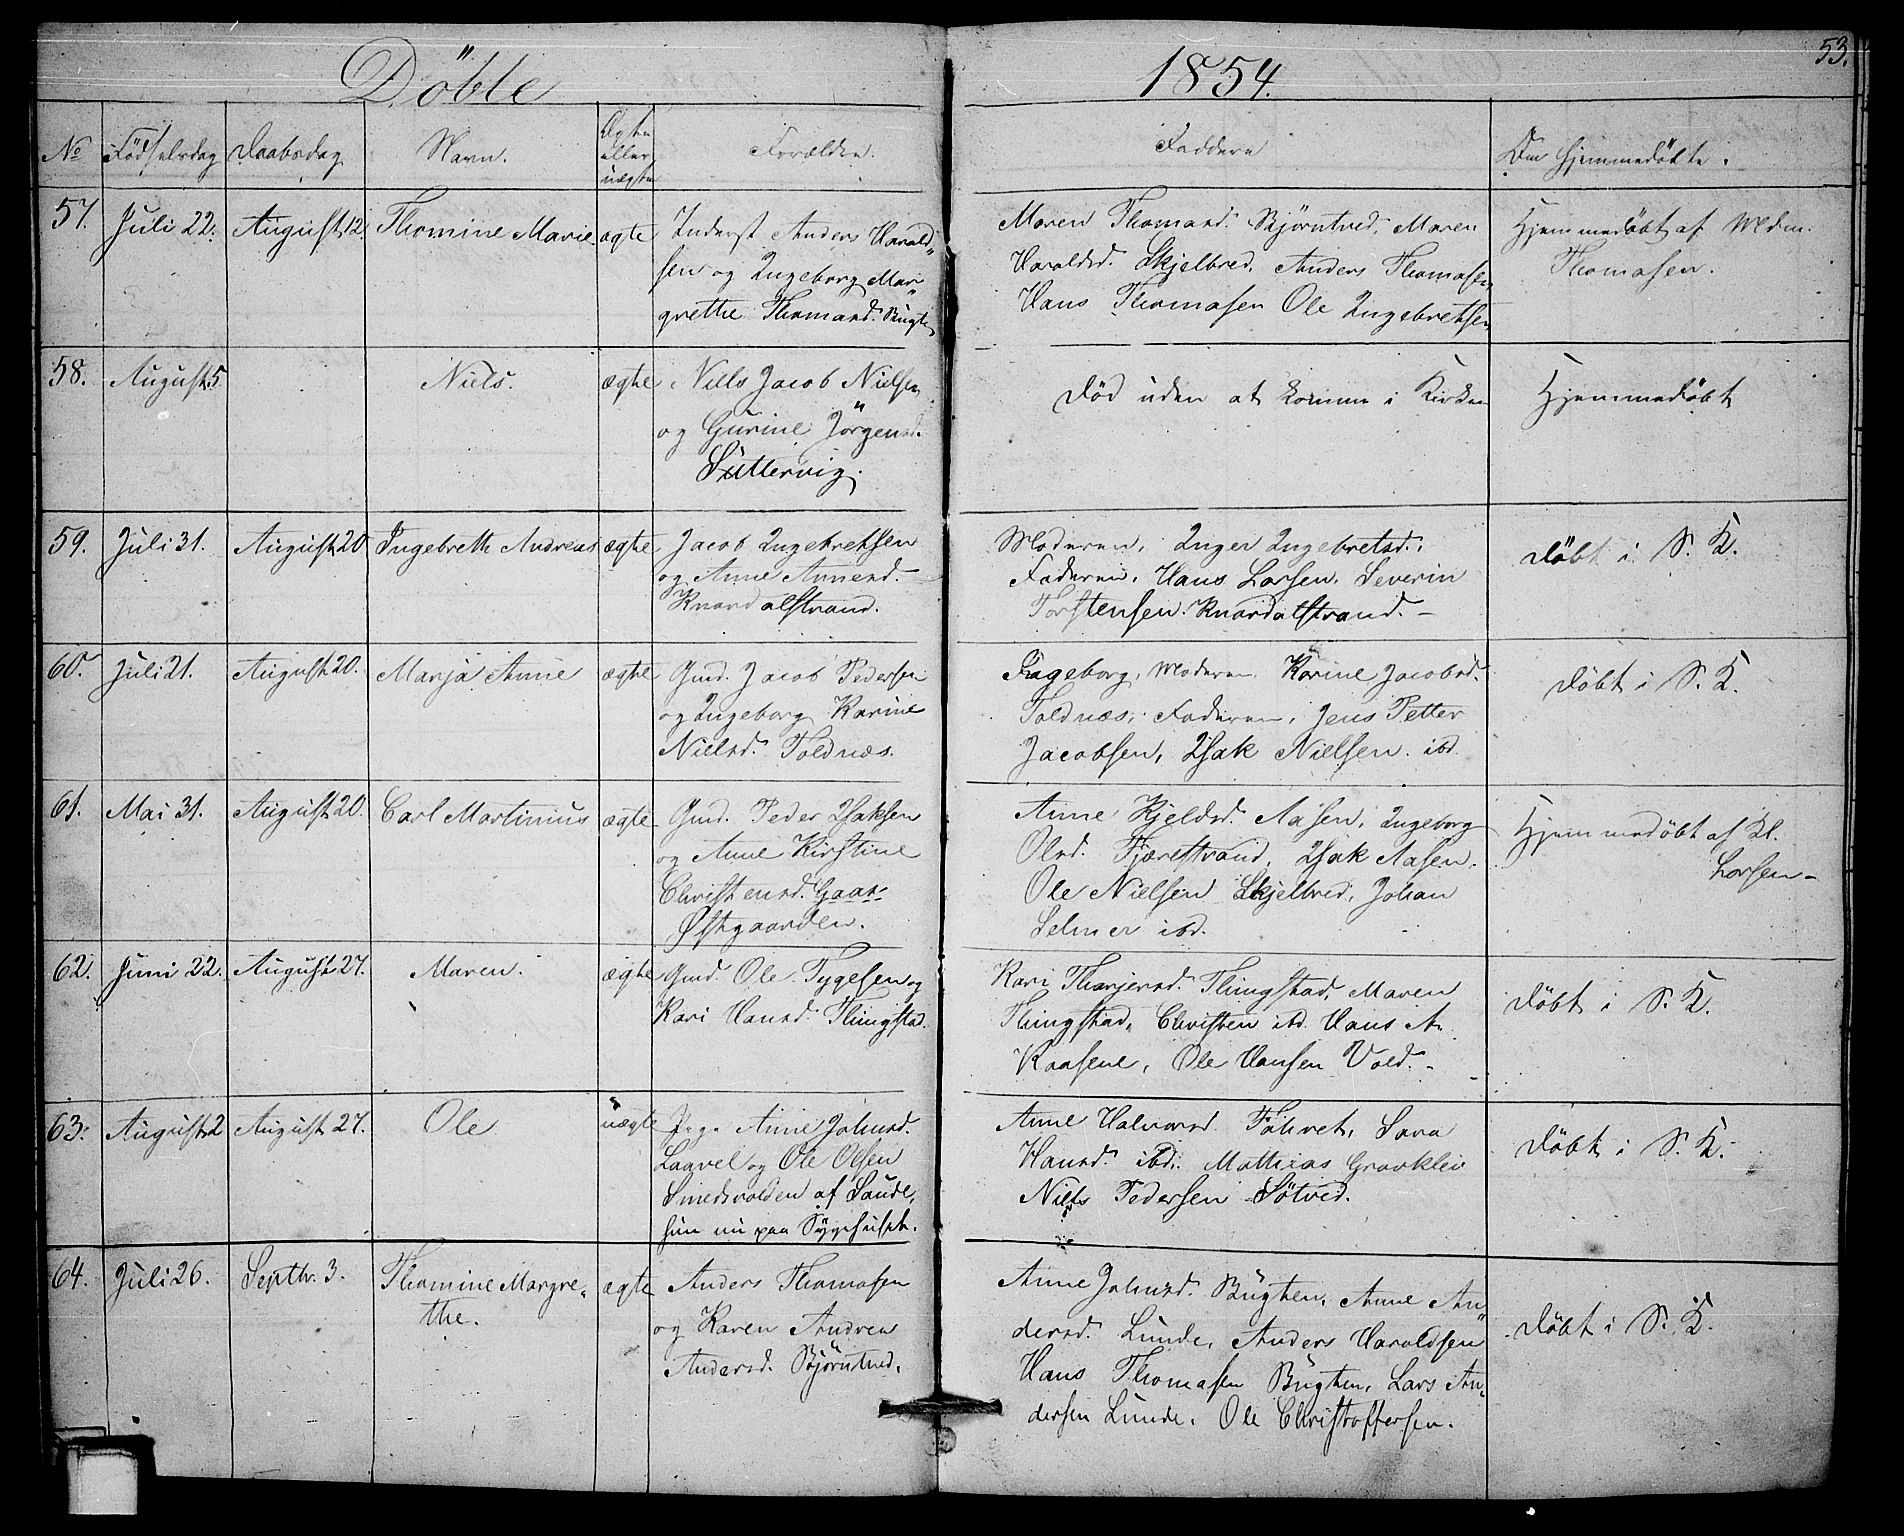 53.
Döbte 1854.
No Födselsdag Daabsdag Navn. Ægte eller uægte Forældre. Faddere Om hjemmedöbte.
57. Juli 22. August 12. Thomine Marie ægte Inderst Anders Harald-
sen og Ingeborg Mar-
grethe Thomasd. Bugten
Maren Thomasd. Björntved, Maren
Haraldsd. Skjelbred, Anders Thomasen
Hans Thomasen Ole Ingebretsen
Hjemmedöbt af Mdm.
Thomasen.
58. August 5. Niels. ægte Niels Jacob Nielsen
og Gurine Jörgensd.
Suttervig.
Död uden at komme i Kirken
Hjemmedöbt
59. Juli 31. August 20 Ingebreth Andreas ægte Jacob Ingebretsen
og Anne Annesd.
Knardalstrand.
Moderen, Inger Ingebretsd.,
Faderen, Hans Larsen, Severin
Torstensen Knardalstrand. -
Döbt i S. K.
60. Juli 21. August 20. Marja Anne ægte Gmd. Jacob Pedersen
og Ingeborg Karine
Nielsd. Toldnæs.
Ingeborg, Moderen Karine Jacobsd.
Toldnæs, Faderen, Jens Petter
Jacobsen, Isak Nielsen ibd
Döbt i S. K.
61. Mai 31. August 20. Carl Martinius ægte Gmd. Peder Isaksen
og Anne Kirstine
Christensd. Gaas-
Østgaarden.
Anne Kjeldsd. Aasen, Ingeborg
Olsd. Fjærestrand, Isak Aasen.
Ole Nielsen Skjelbred, Johan
Selmer ibd.
Hjemmedöbt af Kl.
Larsen -
62. Juni 22. August 27. Maren. ægte Gmd. Ole Tygesen og
Kari Hansd. Flingstad.
Kari Thorjersd. Flingstad, Maren
Flingstad, Christen ibd. Hans A.
Kaasene, Ole Hansen Vold. -
Döbt i S. K.
63. August 2 August 27. Ole uægte Pige Anne Johnsd.
Laavel og Ole Olsen
Smedsvolden af Saude,
hun nu paa Sygehuset.
Anne Halvorsd. Sara
Hansd. ibd. Mathias Gravklev
Niels Pedersen Sötved.
Döbt i S. K.
64. Juli 26. Septbr. 3. Thomine Margre-
the. ægte Anders Thomasen
og Karen Andrea
Andersd. Björntved.
Anne Johnsd. Bugten, Anne An-
dersd. Lunde, Anders Haraldsen
Hans Thomasen Bugten, Lars An-
dersen Lunde, Ole Christoffersen.
Döbt i S. K.